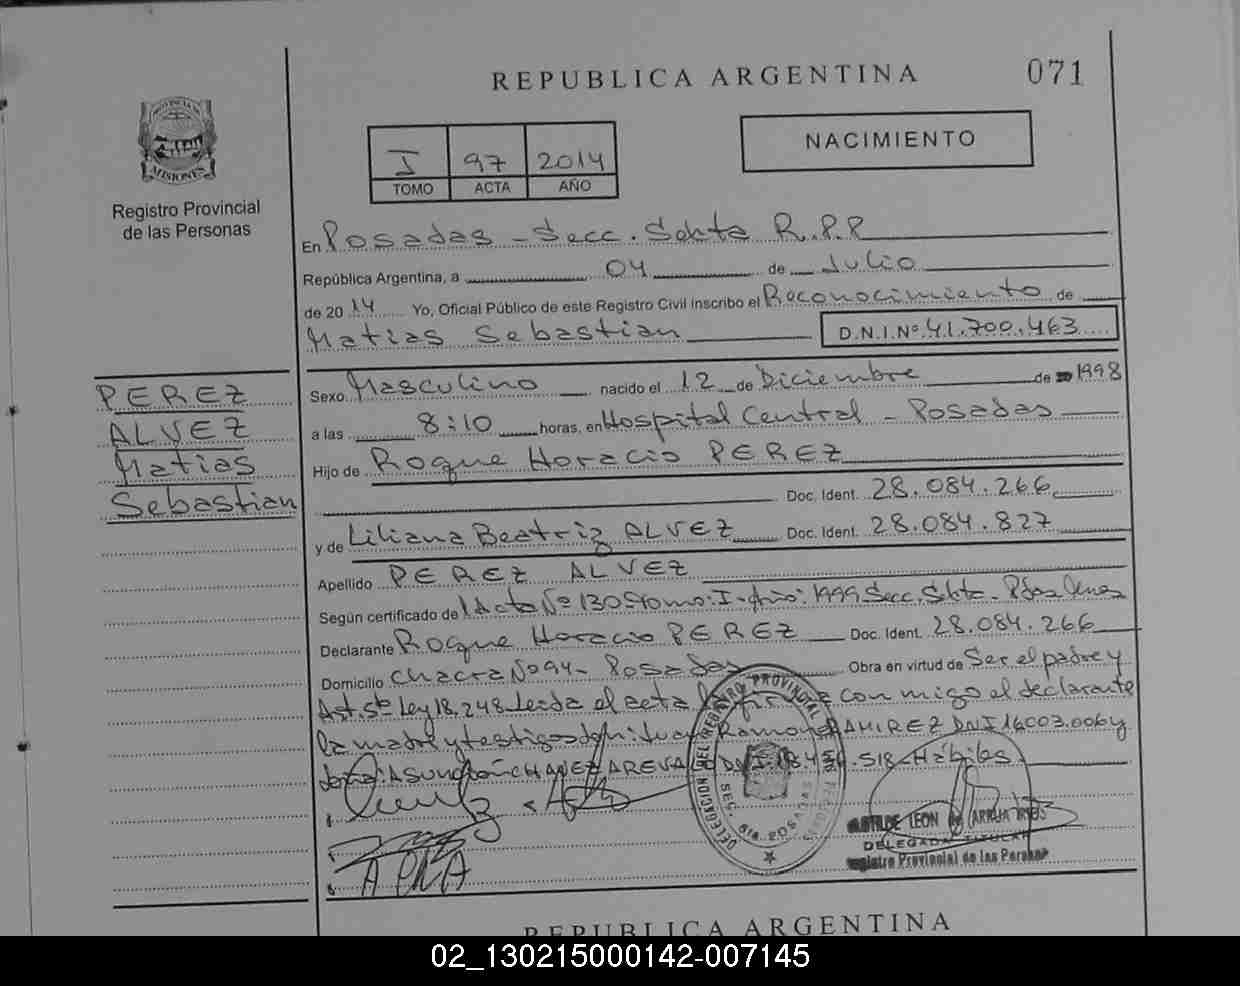 REPUBLICA ARGENTINA
071
PROVINCIA
MISIONES
Registro Provincial
de las Personas
I 97 2014
TOMO ACTA AÑO
NACIMIENTO
En Posadas - Secc. Sexta R.P.P
República Argentina, a 04 de Julio
de 2014 Yo, Oficial Público de este Registro Civil inscribo el Reconocimiento de
Matias Sebastian D.N.I.Nº 41.700.463
PEREZ
ALVEZ
Matias
Sebastian
Sexo Masculino nacido el 12 de Diciembre de 1998
a las 8:10 horas, en Hospital Central - Posadas
Hijo de Roque Horacio PEREZ
Doc. Ident. 28.084.266
y de Liliana Beatriz ALVEZ Doc. Ident. 28.084.827
Apellido PEREZ ALVEZ
Según certificado de Acta Nº 130 Tomo: I - Año: 1999 Secc. Sexta
Declarante Roque Horacio PEREZ Doc. Ident. 28.084.266
Domicilio Chacra Nº 94 - Posadas Obra en virtud de Ser el padre y
Ley 18.248 Leida el acta la firma con migo el declarante
la madre y testigos Ramon RAMIREZ DNI 16003.006 y
ASunción CHAVEZ AREVA DNI .518 - Hábiles
DELEGACION DEL REGISTRO PROVINCIAL
SEC. 6ta POSADAS
LEON
DELEGADA TITULAR
Registro Provincial de las Personas
REPUBLICA ARGENTINA
02_130215000142-007145